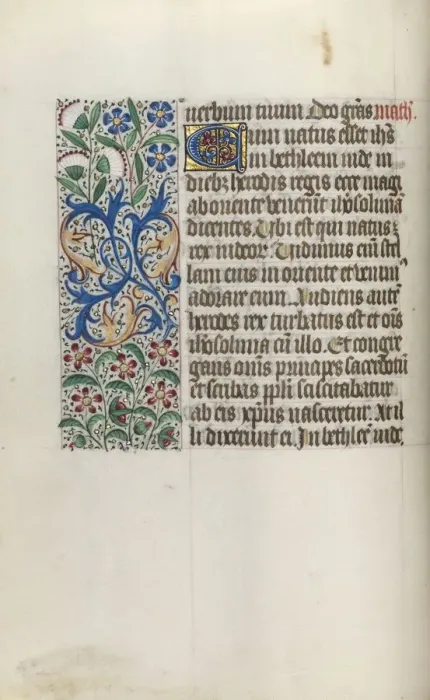 uerbum tuum Deo gr̄as math̄.
Cum natus esset ih̄s
in bethleem iude in
dieb; herodis regis ecce magi
ab oriente venerūt ih̄osolimā
dicentes. Ubi est qui natus ē
rex iudeoꝝ. Uidimus eī stel
lam eius in oriente et venim᷒
adorare eum. Audiens autē
herodes rex turbatus est et oīs
ih̄osolima cū illo. Et congre
gans om̄is principes sacerdotū
et scribas pp̄li sciscitabatur
ab eis xp̄us nasceretur. At il
li dixerunt ei. In bethleē iude.